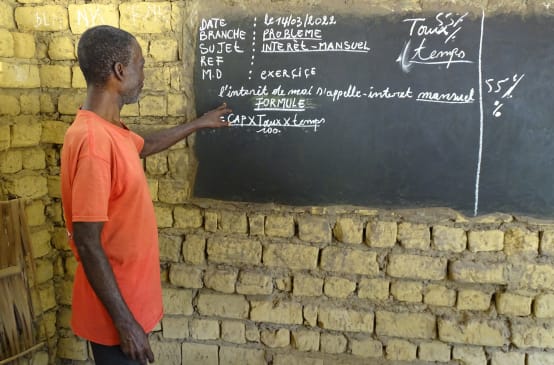 DATE : le 14/03/2022
BRANCHE : PROBLEME
SUJET : INTERÊT-MANSUEL
REF :
M.D : exerçiçe
l'interêt de moi s'appelle-interet mansuel
FORMULE
= CAP X Taux X temps
100
55%
Taux
temps
55%
%